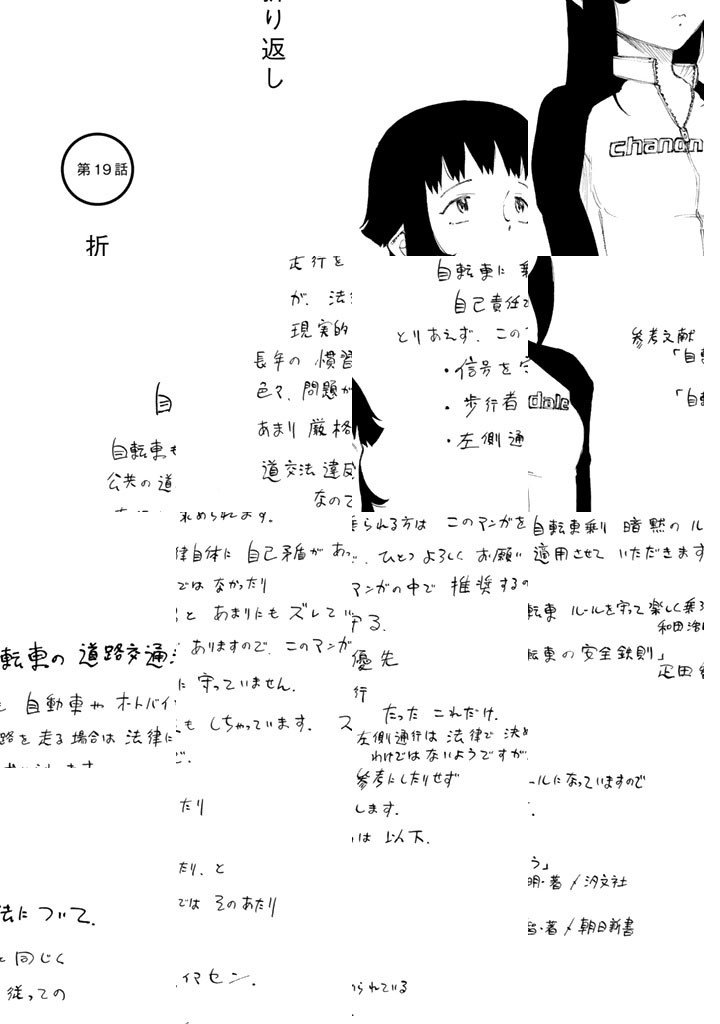 り返し
第19話
折
chanon
走行を
が、法
現実的
長年の 慣習
色々、問題が
あまり 厳格
道交法 違反
なので
自転車に
自己責任で
とりあえず、この
・信号を守
・歩行者
・左側通
dale
参考文献
「自
「自
自
自転車も
公共の道
求められます。
律自体に 自己矛盾があっ
ではなかったり
と あまりにも ズレてい
ありますので、このマンガ
に 守っていません。
も しちゃっています。 ス
転車の 道路交通
自動車や オートバイ
路を走る場合は 法律に
られる方は このマンガを
、ひとつ よろしく お願い
マンガの中で 推奨するの
する。
優先
行
たった これだけ。
左側通行は 法律で 決め
わけではないようですが、
自転車乗り 暗黙の ル
適用させて いただきます
転車 ルールを守って楽しく乗ろ
和田浩
転車の安全鉄則」
疋田
たり
たり、と
では そのあたり
イマセン。
法について。
と 同じく
従っての
参考にしたりせず
します。
は 以下。
られている
ールになっていますので
う」
明・著 / 汐文社
・著 / 朝日新書